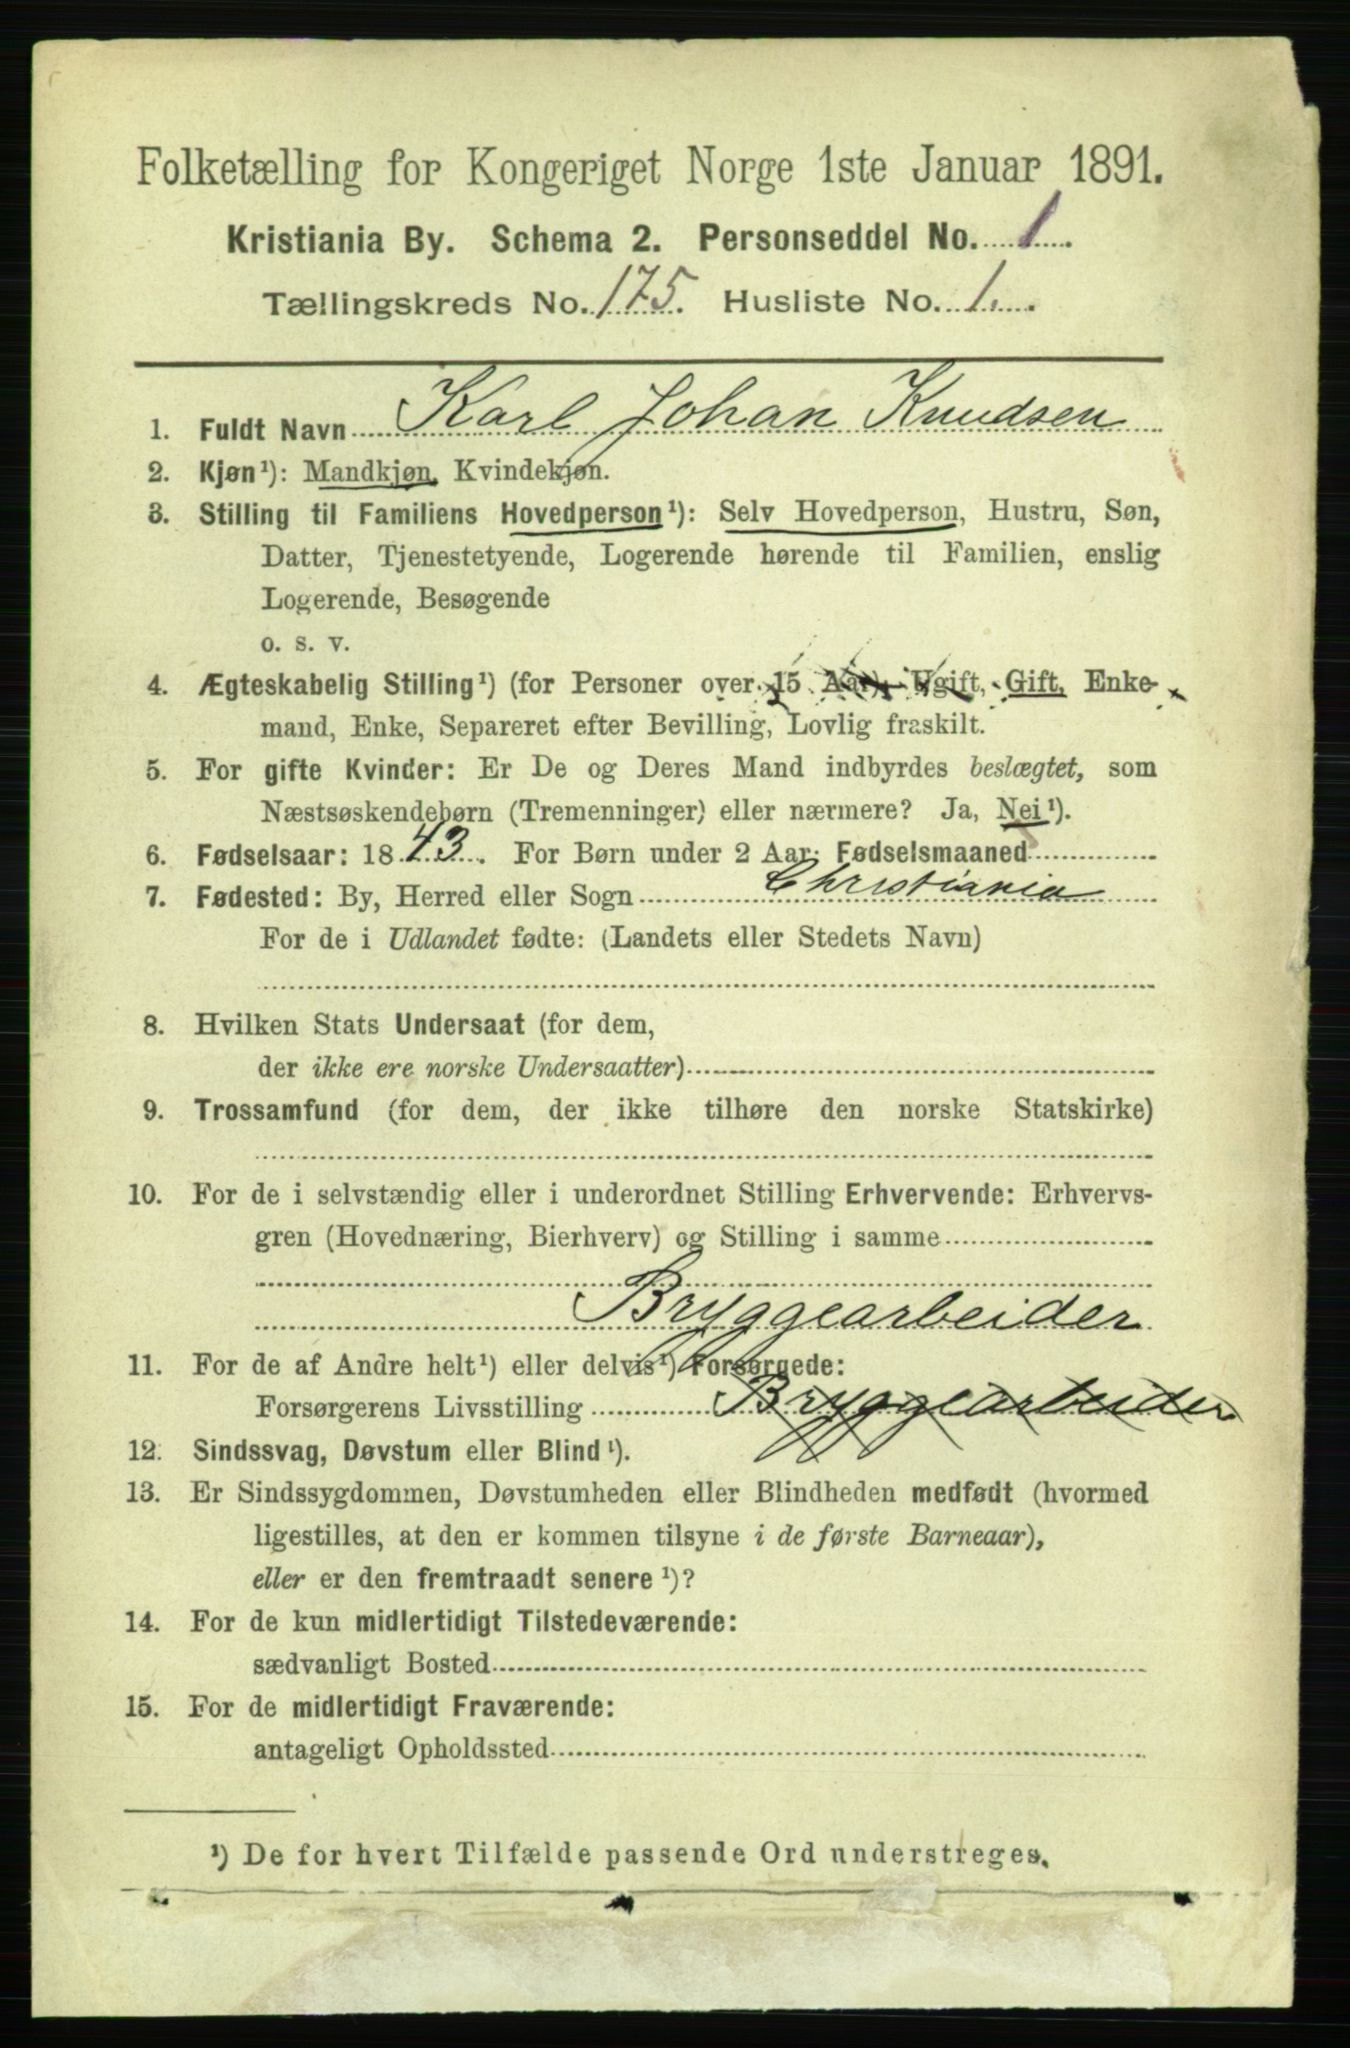 Folketælling for Kongeriget Norge 1ste Januar 1891.
Kristiania By. Schema 2. Personseddel No. 1.
Tællingskreds No. 175. Husliste No. 1.
1. Fuldt Navn Karl Johan Knudsen
2. Kjøn¹): Mandkjøn, Kvindekjøn.
3. Stilling til Familiens Hovedperson¹): Selv Hovedperson, Hustru, Søn,
Datter, Tjenestetyende, Logerende hørende til Familien, enslig
Logerende, Besøgende
o. s. v.
4. Ægteskabelig Stilling¹) (for Personer over 15 Aar): Ugift, Gift, Enke-
mand, Enke, Separeret efter Bevilling, Lovlig fraskilt.
5. For gifte Kvinder: Er De og Deres Mand indbyrdes beslægtet, som
Næstsøskendebørn (Tremenninger) eller nærmere? Ja, Nei¹).
6. Fødselsaar: 1843. For Børn under 2 Aar: Fødselsmaaned
7. Fødested: By, Herred eller Sogn Christiania
For de i Udlandet fødte: (Landets eller Stedets Navn)
8. Hvilken Stats Undersaat (for dem,
der ikke ere norske Undersaatter)
9. Trossamfund (for dem, der ikke tilhøre den norske Statskirke)
10. For de i selvstændig eller i underordnet Stilling Erhvervende: Erhvervs-
gren (Hovednæring, Bierhverv) og Stilling i samme
Bryggearbeider
11. For de af Andre helt¹) eller delvis¹) Forsørgede:
Forsørgerens Livsstilling Bryggearbeider
12. Sindssvag, Døvstum eller Blind¹).
13. Er Sindssygdommen, Døvstumheden eller Blindheden medfødt (hvormed
ligestilles, at den er kommen tilsyne i de første Barneaar),
eller er den fremtraadt senere¹)?
14. For de kun midlertidigt Tilstedeværende:
sædvanligt Bosted
15. For de midlertidigt Fraværende:
antageligt Opholdssted
¹) De for hvert Tilfælde passende Ord understreges.